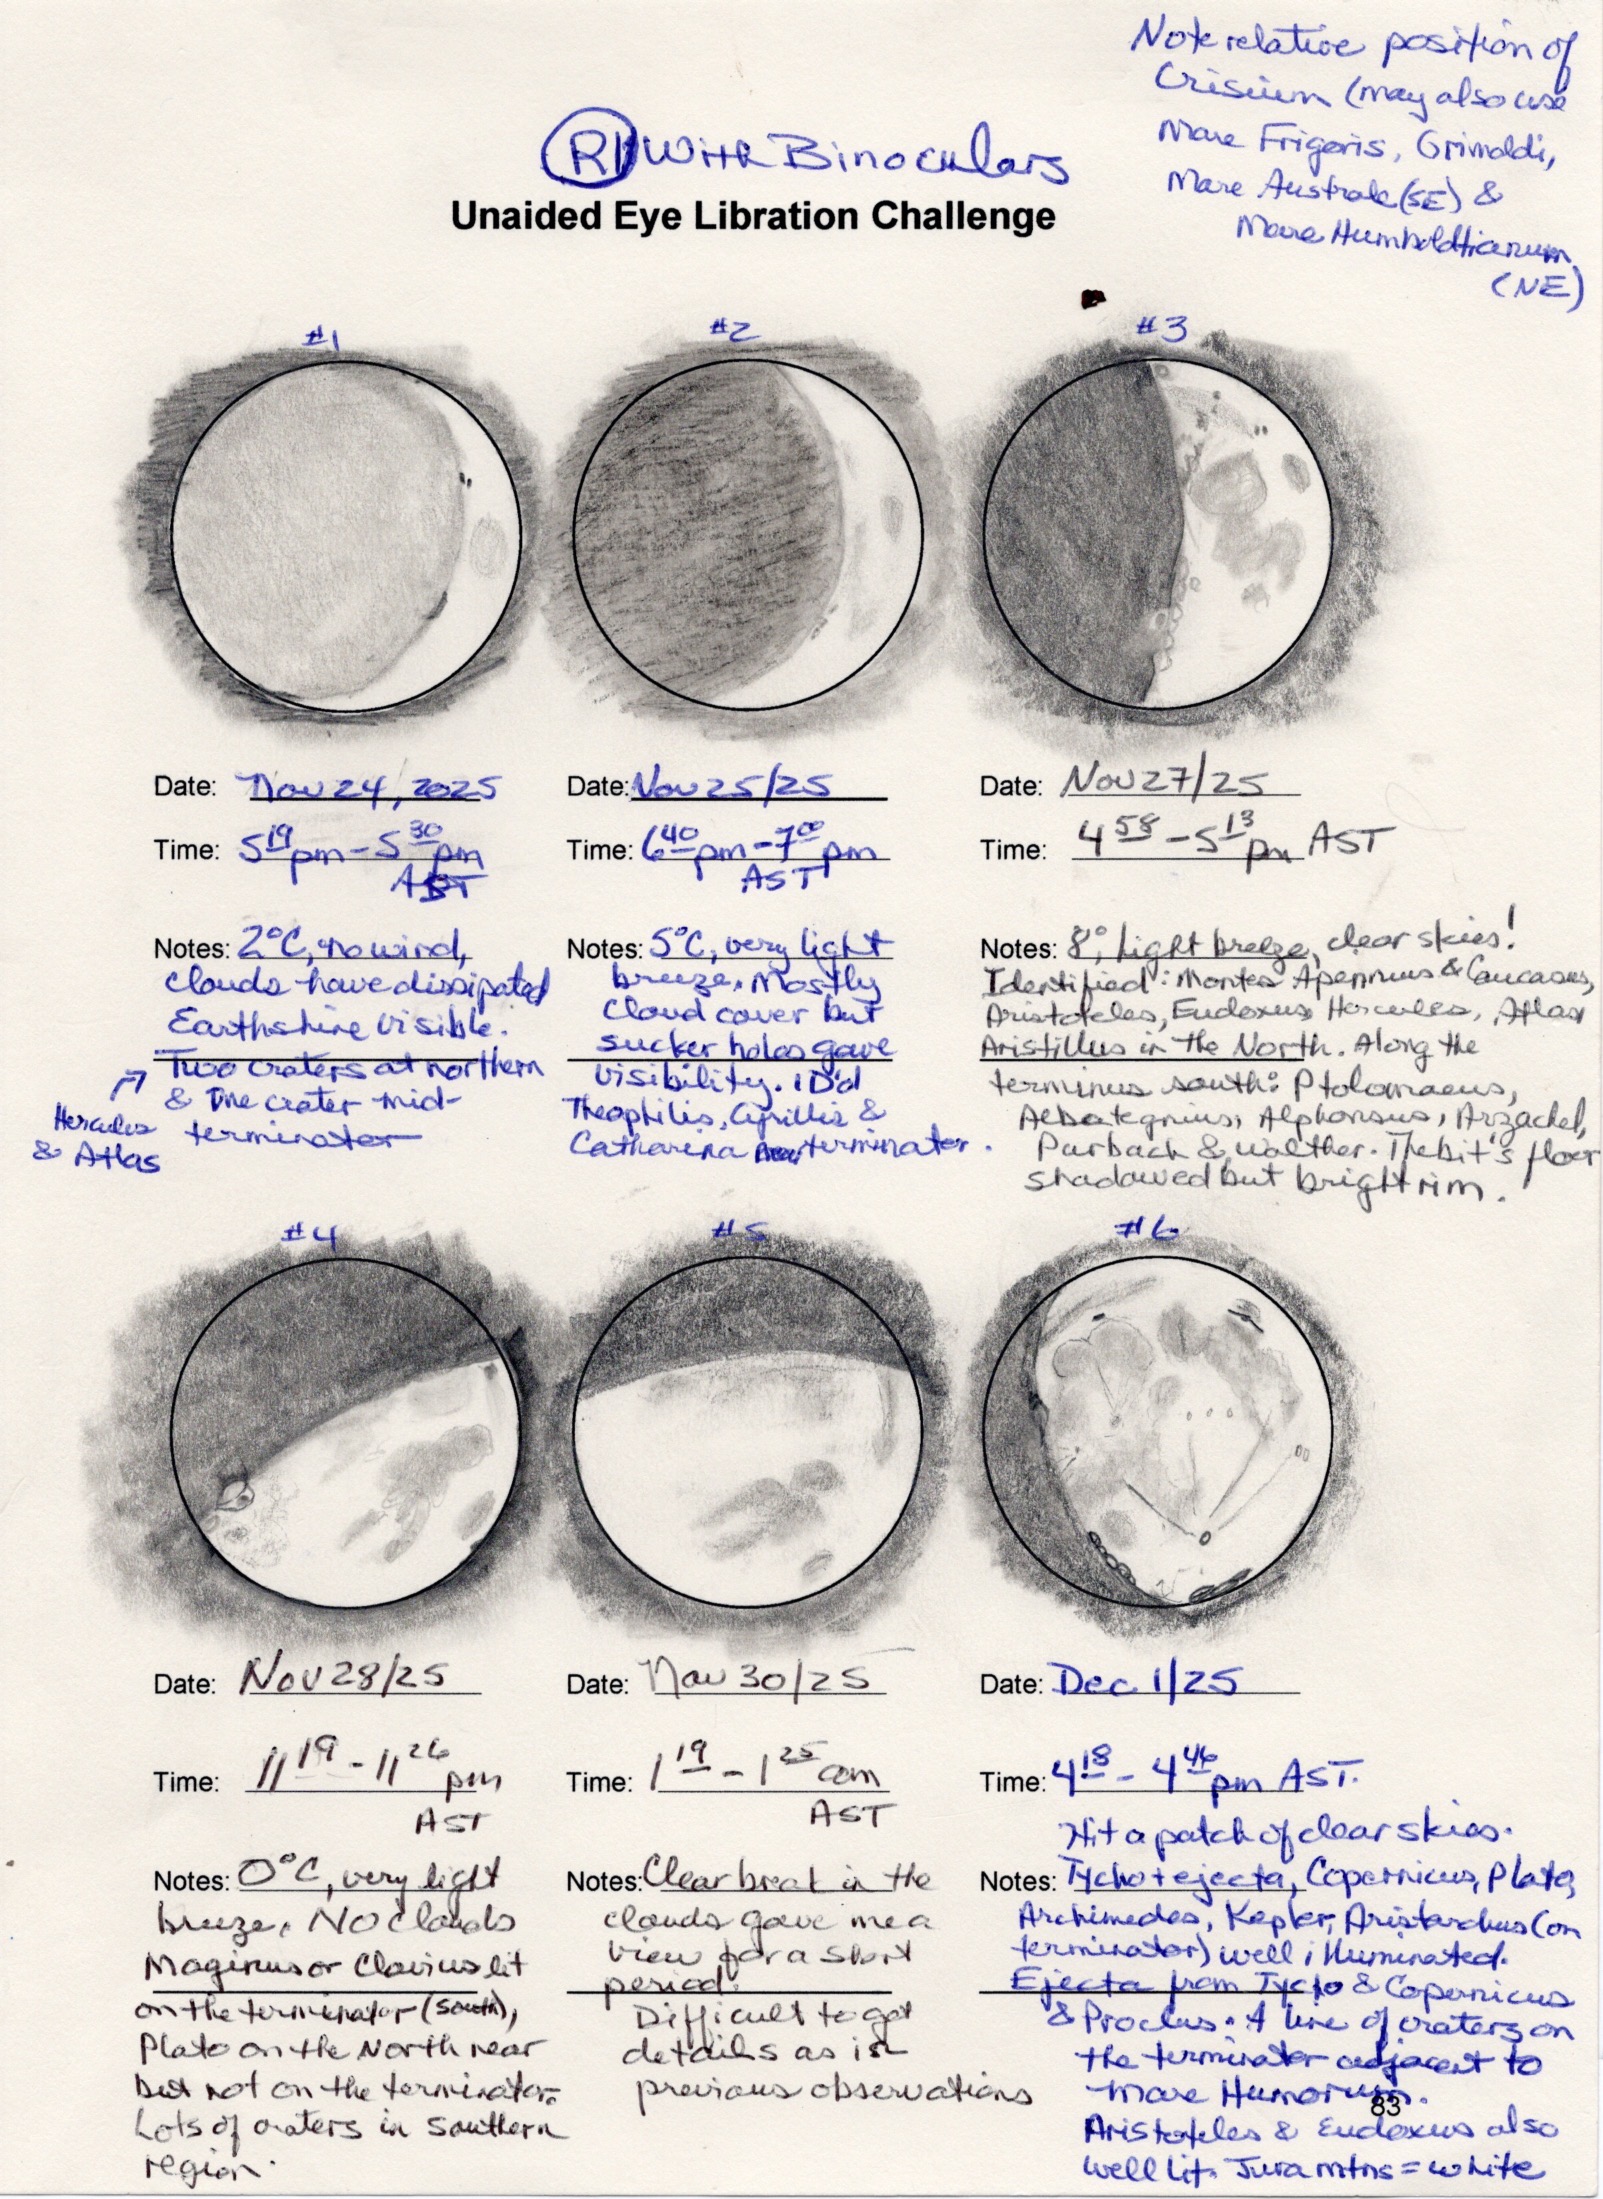 Note relative position of
Crisium (may also use
Mare Frigoris, Grimaldi,
Mare Australe (SE) &
Mare Humboldtianum
(NE)
R1 With Binoculars
Unaided Eye Libration Challenge
#1
Date: Nov 24, 2025
Time: 5 19 pm - 5 30 pm
AST
Notes: 2°C, no wind,
clouds have dissipated
Earthshine visible.
Two craters at northern
& one crater mid-
terminator
Hercules
& Atlas
#2
Date: Nov 25/25
Time: 6 40 pm - 7 00 pm
AST
Notes: 5°C, very light
breeze. Mostly
cloud cover but
sucker holes gave
visibility. ID'd
Theophilis, Cyrillis &
Catharina near terminator.
#3
Date: Nov 27/25
Time: 4 58 - 5 13 pm AST
Notes: 8°, light breeze, clear skies!
Identified: Montes Apennius & Caucasus,
Aristoteles, Eudoxus, Hercules, Atlas
Aristillus in the North. Along the
terminus south: Ptolomaeus,
Albategnius, Alphonsus, Arzachel,
Purbach & Walther. Thebit's floor
shadowed but bright rim.
#4
Date: Nov 28/25
Time: 11 19 - 11 26 pm
AST
Notes: 0°C, very light
breeze, No clouds
Maginus or Clavius lit
on the terminator (south),
Plato on the North near
but not on the terminator.
Lots of craters in southern
region.
#5
Date: Nov 30/25
Time: 1 19 - 1 25 am
AST
Notes: Clear break in the
clouds gave me a
view for a short
period.
Difficult to get
details as in
previous observations
#6
Date: Dec 1/25
Time: 4 18 - 4 46 pm AST.
Hit a patch of clear skies.
Notes: Tycho + ejecta, Copernicus, Plato,
Archimedes, Kepler, Aristarchus (on
terminator) well illuminated.
Ejecta from Tycho & Copernicus
& Proclus. A line of craters on
the terminator adjacent to
Mare Humorum.
83
Aristoteles & Eudoxus also
well lit. Jura mtns = white